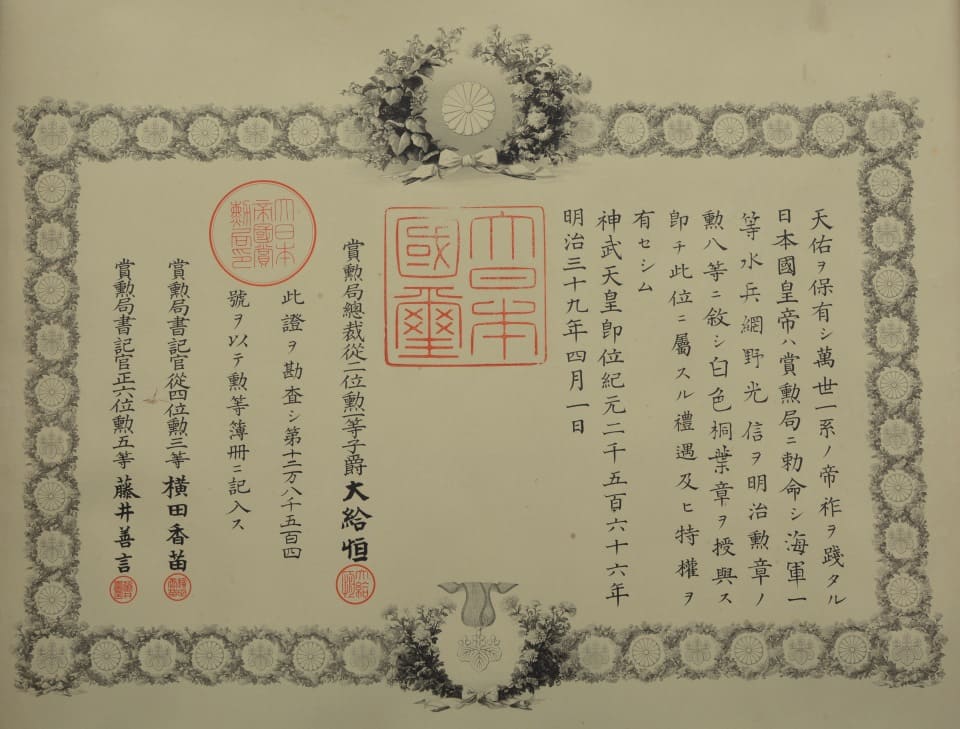 天佑ヲ保有シ萬世一系ノ帝祚ヲ踐タル
日本國皇帝ハ賞勲局ニ勅命シ海軍一
等水兵網野光信ヲ明治勲章ノ
勲八等ニ敘シ白色桐葉章ヲ授與ス
即チ此位ニ屬スル禮遇及ヒ特權ヲ
有セシム
神武天皇即位紀元二千五百六十六年
明治三十九年四月一日
大日本
國璽
賞勲局總裁從二位勲一等子爵大給恒
大日本
帝國賞
勲局印
此證ヲ勘査シ第十二万八千五百四
號ヲ以テ勲等簿册ニ記入ス
賞勲局書記官從四位勲三等橫田香苗
賞勲局書記官正六位勲五等藤井善言